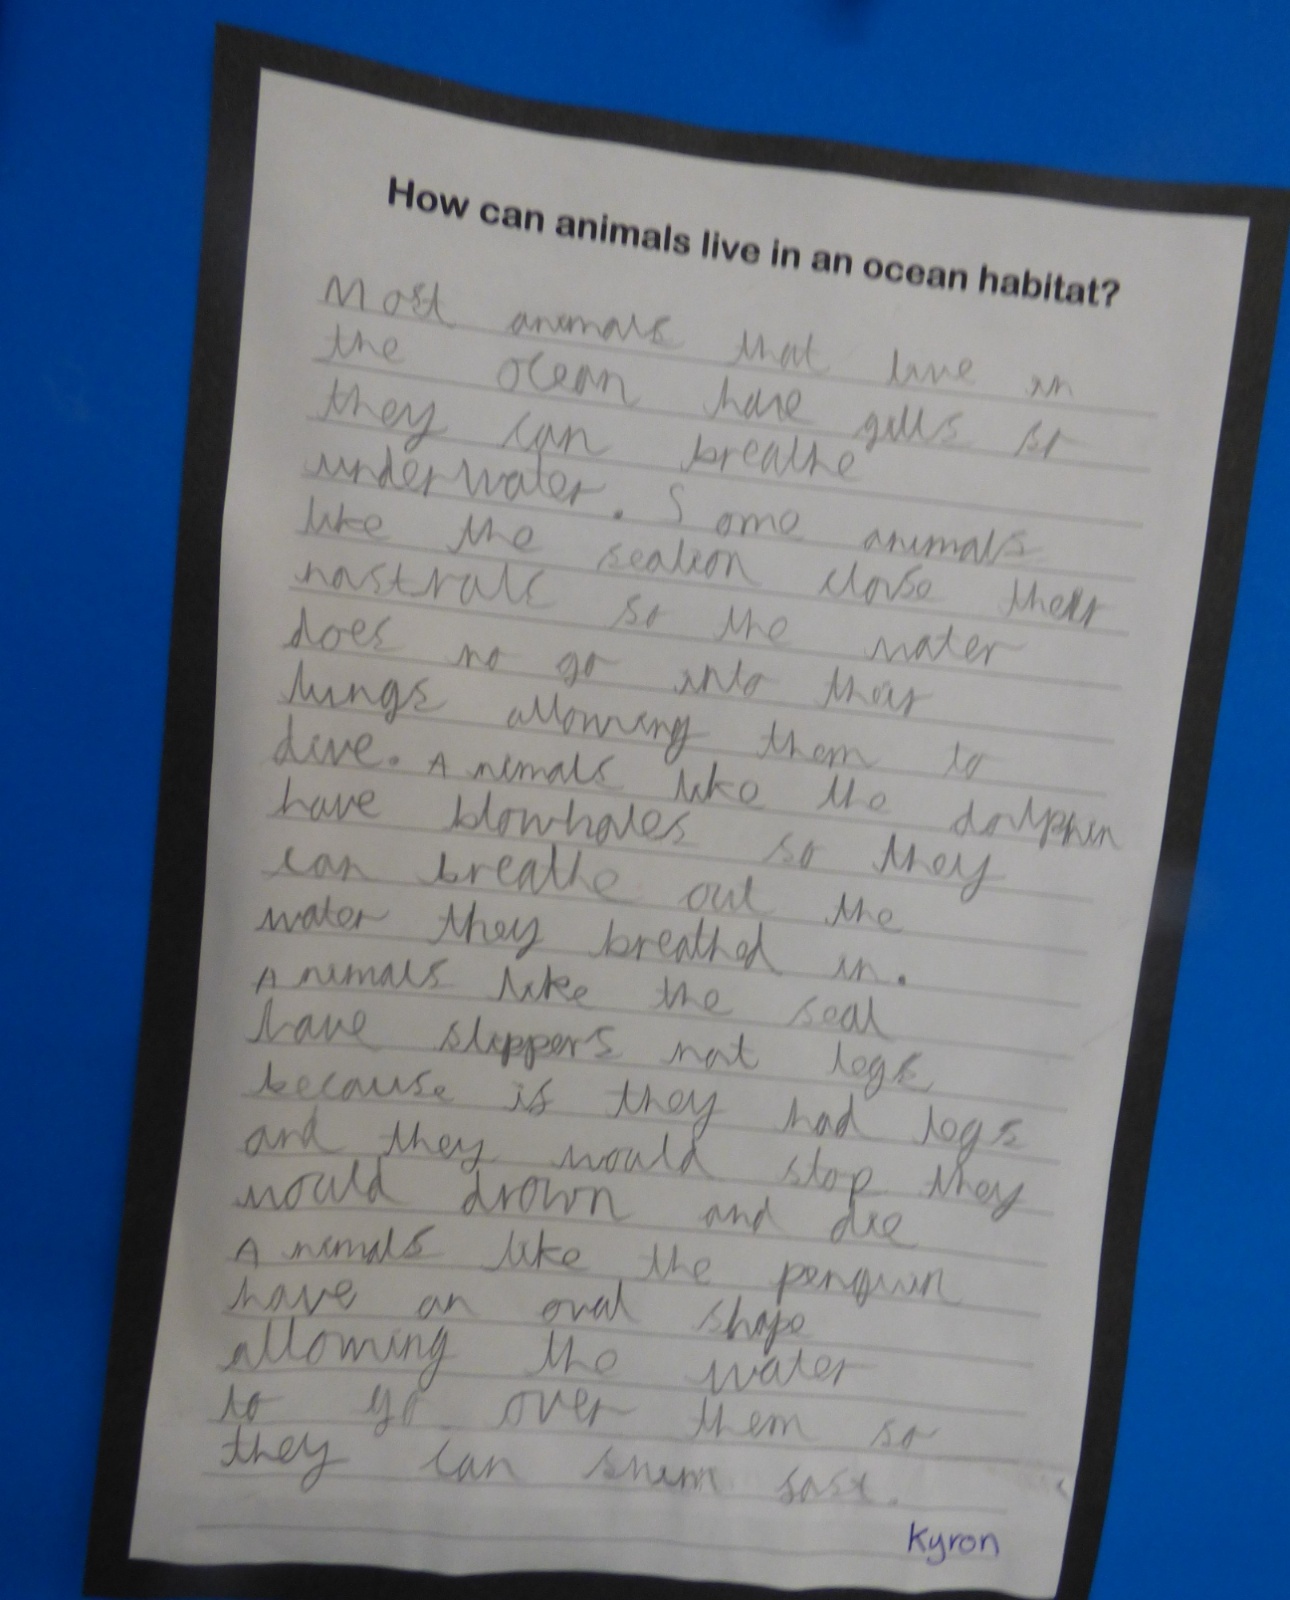 How can animals live in an ocean habitat?
Most animals that live in
the ocean have gills so
they can breathe
underwater. Some animals
like the sealion close their
nostrals so the water
does no go into their
lungs allowing them to
dive. Animals like the dolphin
have blowholes so they
can breathe out the
water they breathed in.
Animals like the seal
have flippers not legs
because if they had legs
and they would stop they
would drown and die
Animals like the penguin
have an oval shape
allowing the water
to go over them so
they can swim fast.
Kyron